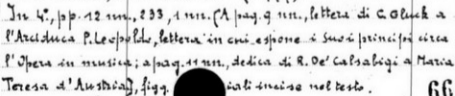 In 4°, pp. 12 nn., 233, 1 nn. (A pag. 9 nn., lettera di C. Gluck a
l'Arciduca P. Leopoldo, lettera in cui espone i suoi principi circa
l'Opera in musica; a pag. 11 nn., dedica di R. De' Calsabigi a Maria
Teresa d'Austria), figg. iali incise nel testo. 66